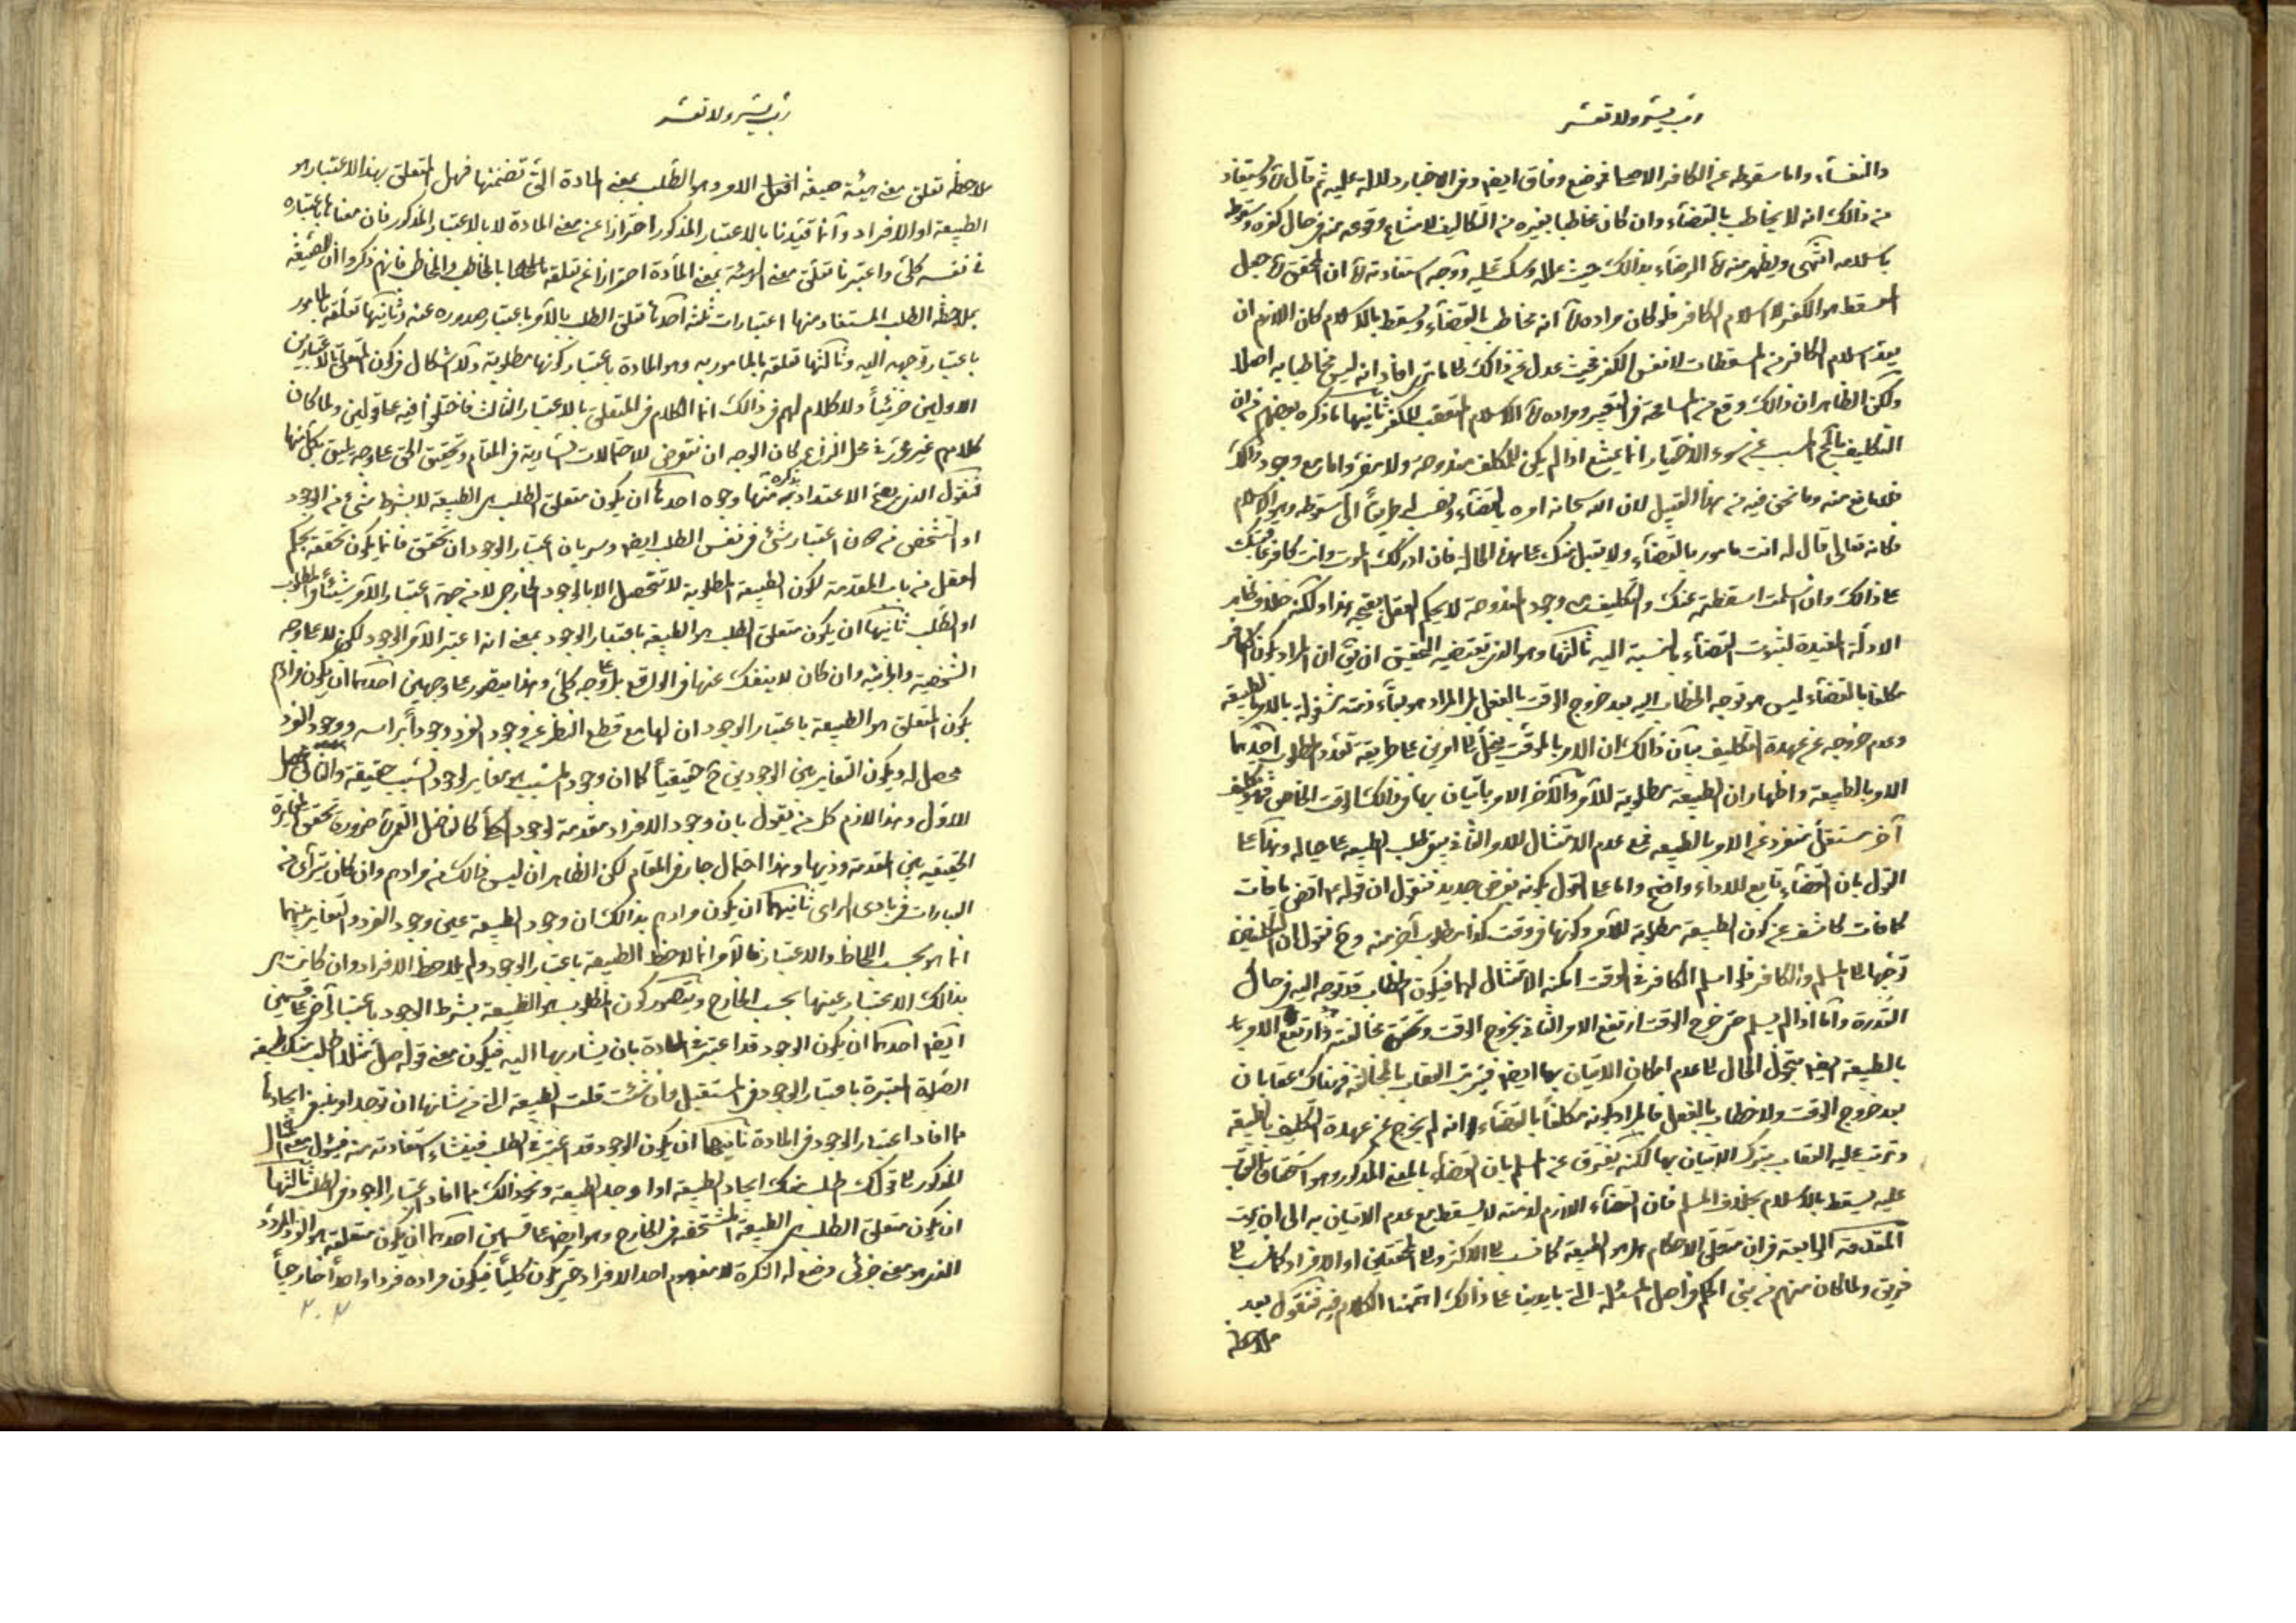 رب يسر ولا تعسر
والنفساء واما سقوطه عن الكافر الاصلي فموضع وفاق ايضا وفي الاخبار دلالة عليه ثم قال ويستفاد
من ذالك انه لا يخاطب بالقضاء وان كان مخاطبا بغيره من التكاليف لامتناع وقوعه منه في حال كفره وسقوطه
باسلامه انتهى ويظهر منه الرضاء بذالك حيث علله وسكت عليه ووجه استفادته ان المحقق جعل
المسقط هو الكفر لا اسلام الكافر فلو كان مراده انه مخاطب بالقضاء ويسقط بالاسلام كان اللازم ان
يعد اسلام الكافر من المسقطات لا نفس الكفر فحيث عدل عن ذالك الى ما ترى افاد انه ليس مخاطبا به اصلا
ولكن الظاهر ان ذالك وقع من المسامحة في التعبير ومراده الاسلام المتعقب للكفر ثانيها ما ذكره بعضهم من ان
التكليف بالمحال المسبب عن سوء الاختيار انما يمتنع اذا لم يكن للمكلف مندوحة ولا مفر واما مع وجود ذالك
فلا مانع منه وما نحن فيه من هذا القبيل لان الله سبحانه امره بالقضاء ونصب له طريقا الى سقوطه وهو الاسلام
فكانه تعالى قال له انت مامور بالقضاء ولا يقبل منك على هذه الحالة فان ادركك الموت وانت كافر عاقبتك
على ذالك وان اسلمت اسقطته عنك والتكليف مع وجود المندوحة لا يحكم العقل بقبحه هذا ولكنه خلاف ظاهر
الادلة المفيدة لثبوت القضاء بالنسبة اليه ثالثها وهو الذي يقتضيه التحقيق ان يق ان المراد بكون الكافر
مكلفا بالقضاء ليس هو توجه الخطاب اليه بعد خروج الوقت بالفعل بل المراد هو بقاء ذمته مشغولة بالامر بالطبيعة
وعدم خروجه عن عهدة التكليف بيان ذالك ان الامر بالموقت ينحل الى امرين على طريقة تعدد المطلوب احدهما
الامر بالطبيعة واظهار ان الطبيعة مطلوبة للآمر والآخر الامر باتيان بها في ذالك الوقت الخاص فهو تكليف
آخر مستقل منفرد عن الامر بالطبيعة فمع عدم الامتثال للامر الثاني يبقى طلب الطبيعة على حياله وهذا على
القول بان القضاء تابع للاداء واضح واما على القول بكونه بفرض جديد فنقول ان قوله اقض ما فات
كما فات كاشف عن كون الطبيعة مطلوبة للآمر وكونها في وقت كذا مطلوب آخر منه وح نقول ان التكليفين
توجها الى المسلم والكافر فلو اسلم الكافر في الوقت امكنه الامتثال لهما فيكون الخطاب قد توجه اليه في حال
القدرة واما اذا لم يسلم حتى خرج الوقت ارتفع الامر الثاني بخروج الوقت وتحقق مخالفته وارتفع الامر
بالطبيعة ايضا بتحول الحال الى عدم امكان الاتيان بها ايضا فيترتب العقاب بالمخالفة فهناك عقابان
بعد خروج الوقت ولا خطاب بالفعل فالمراد بكونه مكلفا بالقضاء انه لم يخرج عن عهدة التكليف بالطبيعة
وترتب عليه العقاب بترك الاتيان بها لكنه يفترق عن المسلم بان القضاء بالمعنى المذكور وهو استحقاق العقاب
عليه يسقط بالاسلام بخلاف المسلم فان القضاء اللازم لذمته لا يسقط مع عدم الاتيان به الى ان يموت
المقدمة الرابعة في ان متعلق الاحكام هل هو الطبيعة كما نسب الى الاكثر والى المحققين او الافراد كما نسب الى
فريق ولما كان منهم من بنى الحكم في اصل المسئلة التي بايدينا على ذالك اتممنا الكلام فيه فنقول بعد
ملاحظة
رب يسر ولا تعسر
ملاحظة تعلق معنى هيئة صيغة افعل الامر وهو الطلب بمعنى المادة التي تضمنها فهل المتعلق بهذا الاعتبار هو
الطبيعة او الافراد وانا قيدنا بالاعتبار المذكور احترازا عن معنى المادة لا بالاعتبار المذكور فان معناها باعتباره
في نفسه كلي واعتبرنا تعلق معنى الهيئة بمعنى المادة احترازا عن تعلقه بالمخاطب والمخاطب فانهم ذكروا ان الصيغة
بملاحظة الطلب المستفاد منها اعتبارات ثلثة احدها تعلق الطلب بالآمر باعتبار صدوره عنه وثانيها تعلقه بالمامور
باعتبار توجهه اليه وثالثها تعلقه بالمامور به وهو المادة باعتبار كونها مطلوبة ولا اشكال في كون المتعلق بالاعتبارين
الاولين جزئيا ولا كلام لهم في ذالك انما الكلام في المتعلق بالاعتبار الثالث فاختلفوا فيه على قولين ولما كان
كلامهم غير محرر في محل النزاع كان الوجه ان نتعرض للاحتمالات السارية في المقام وتحقيق الحق على وجه يليق بكل منها
فنقول الذي يصح الاعتداد بذكره منها وجوه احدها ان يكون متعلق الطلب هو الطبيعة لا بشرط شيء من الوجود
او التشخص من دون اعتبار شيء في نفس الطلب ايضا وسريان اعتبار الوجود ان تحقق فانما يكون تحققه بحكم
العقل من باب المقدمة لكون الطبيعة المطلوبة لا تتحصل الا بالوجود الخارجي لا من جهة اعتبار الآمر شيئا في المطلوب
او الطلب ثانيها ان يكون متعلق الطلب هو الطبيعة باعتبار الوجود بمعنى انه اعتبر الآمر الوجود لكن لا على وجه
الشخصية والجزئية وان كان لا ينفك عنها في الواقع بل على وجه كلي وهذا يتصور على وجهين احدهما ان يكون مرادهم
بكون المتعلق هو الطبيعة باعتبار الوجود ان لها مع قطع النظر عن وجود الفرد وجودا براسه ووجود الفرد
محصل له ويكون التغاير بين الوجودين ح حقيقيا كما ان وجود المسبب مغاير لوجود السبب حقيقة والثاني محصل
للاول وهذا لازم كل من يقول بان وجود الافراد مقدمة لوجود الكلي كالفاضل القمي ضرورة تحقق المغايرة
الحقيقية بين المقدمة وذيها وهذا احتمال جار في المقام لكن الظاهر ان ليس ذالك من مرادهم وان كان يترآى من
العبارات في بادي الراي ثانيهما ان يكون مرادهم بذالك ان وجود الطبيعة عين وجود الفرد والتغاير بينهما
انما هو بحسب اللحاظ والاعتبار فالآمر انما لاحظ الطبيعة باعتبار الوجود ولم يلاحظ الافراد وان كانت هي
بذالك الاعتبار عينها بحسب الخارج ويتصور كون المطلوب هو الطبيعة بشرط الوجود باعتبار آخر على قسمين
ايضا احدهما ان يكون الوجود قد اعتبر في المادة بان يشار بها اليه فيكون معنى قوله صل مثلا اطلب منك طبيعة
الصلوة المعتبرة باعتبار الوجود في المستقبل وان شئت قلت الطبيعة التي من شانها ان توجد او ينبغي ايجادها
مما افاد اعتبار الوجود في المادة ثانيهما ان يكون الوجود قد اعتبر في الطلب فينشاء استفادته منه فيئول معنى المثال
المذكور الى قولك اطلب منك ايجاد الطبيعة او اوجد الطبيعة ونحو ذالك مما افاد اعتبار الوجود في الطلب ثالثها
ان يكون متعلق الطلب هو الطبيعة المتشخصة في الخارج وهو ايضا على قسمين احدهما ان يكون متعلقه هو الفرد المردد
الذي هو معنى جزئي وضع له النكرة لا مفهوم احد الافراد حتى يكون كليا فيكون مراده فردا واحدا خارجيا